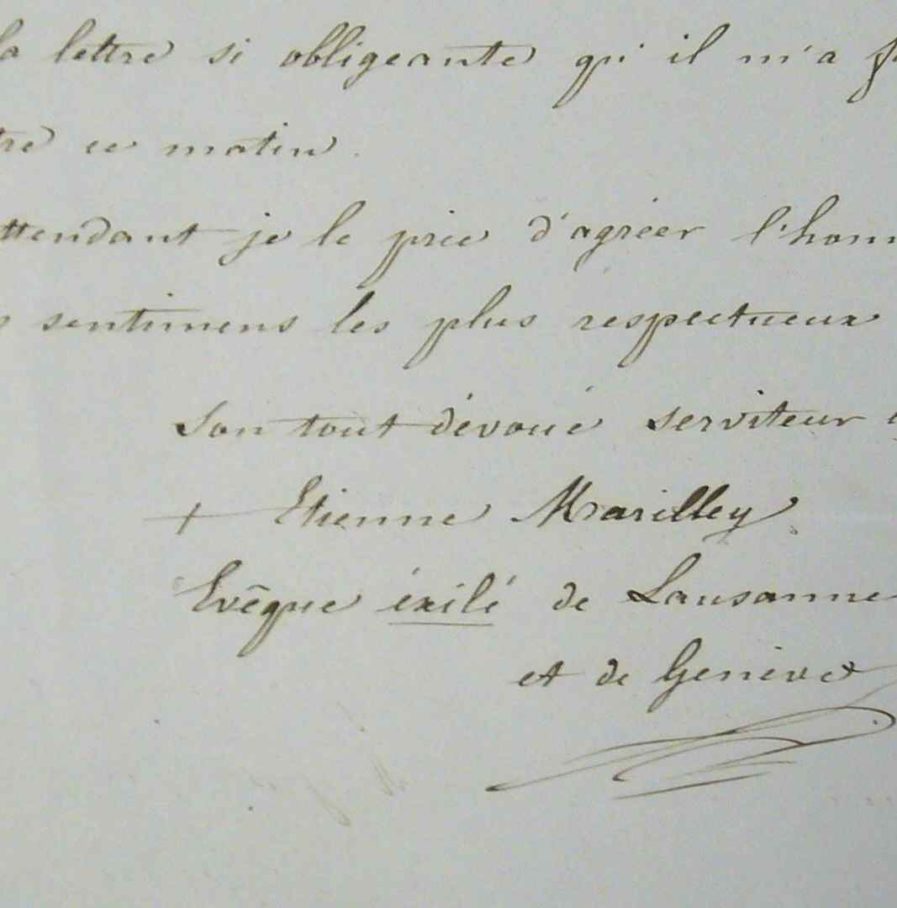 la lettre si obligeante qu'il m'a f
tre ce matin.
ttendant je le prie d'agréer l'hom
s sentimens les plus respectueux
Son tout dévoué serviteur
+ Etienne Marilley
Evêque éxilé de Lausanne
et de Genève